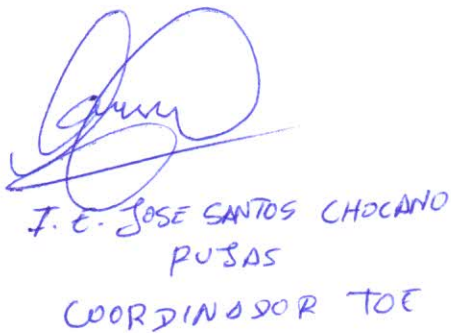 I. E. JOSE SANTOS CHOCANO
PUJAS
COORDINADOR TOE